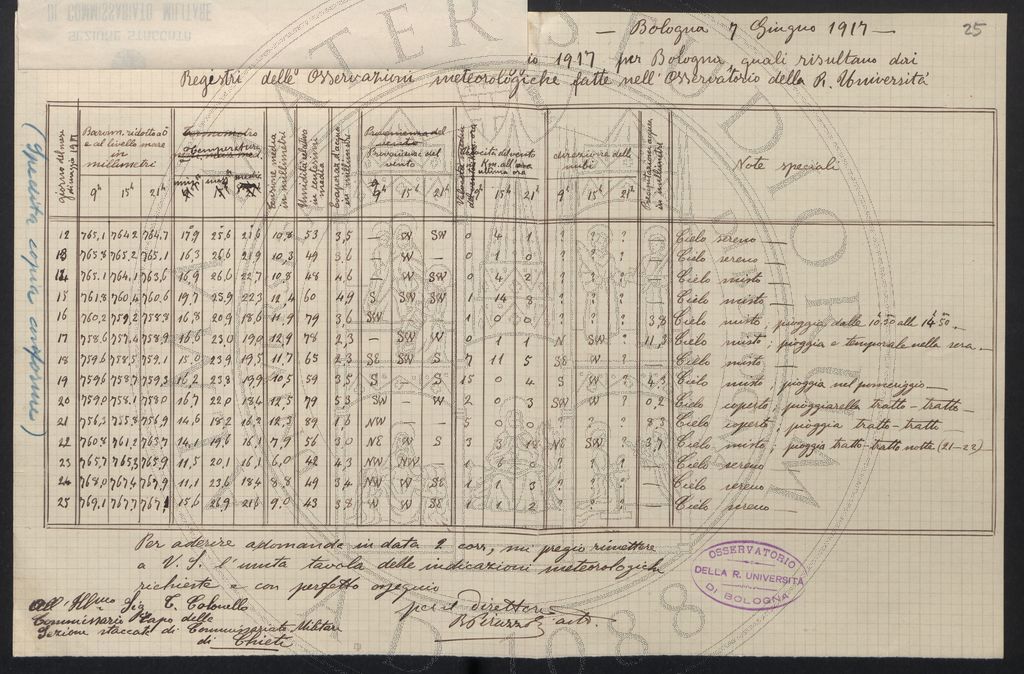 DI COMMISSARIATO MILITARE
SEZIONE STACCATA
— Bologna 7 Giugno 1917 —
25
1917 per Bologna, quali risultano dai
Registri delle Osservazioni meteorologiche fatte nell'Osservatorio della R. Università
(Questa copia conforme)
giorno del mese
Barom. ridotto a 0° e al livello mare in millimetri
9h 15h 21h
Tensione media in millimetri
Umidità relativa in centesimi media
Evaporaz. d'acqua in millimetri
Provenienza del vento
9h 15h 21h
Velocità del vento Km. all'ora ultima ora
9h 15h 21h
direzione delle nubi
9h 15h 21h
Precipitazione acquea in millimetri
Note speciali
12 765,1 764,2 764,7 17,9 25,6 21,6 10,8 53 3,5 — W SW 0 4 1 ? ? ? — Cielo sereno —
13 765,8 765,2 765,1 16,3 26,6 21,9 10,3 49 3,6 — W — 0 1 0 ? ? ? — Cielo sereno —
14 765,1 764,1 763,6 16,9 26,6 22,7 10,8 48 4,6 — W SW 0 4 2 ? ? ? — Cielo misto —
15 761,8 760,4 760,6 19,7 25,9 22,3 12,4 60 4,9 S SW SW 1 14 8 ? ? ? — Cielo misto —
16 760,2 759,2 758,8 16,8 20,9 18,6 11,9 79 3,6 SW — — 1 0 0 ? ? ? 3,8 Cielo misto; pioggia dalle 10.30 all 14.50 —
17 758,6 757,4 758,9 16,6 23,0 19,0 12,9 78 2,3 — SW W 0 1 1 N SW ? 11,3 Cielo misto; pioggia e temporale nella sera —
18 759,6 758,5 759,1 15,0 23,9 19,5 11,7 65 2,3 SE SW S 7 11 5 SE W ? — Cielo misto —
19 759,6 758,7 759,3 16,2 23,8 19,9 10,5 59 3,5 S S S 15 0 4 S W ? 4,3 Cielo misto; pioggia nel pomeriggio —
20 759,0 758,1 758,0 16,7 22,0 18,4 12,5 79 5,3 SW SW W 2 0 3 SW W ? 0,2 Cielo coperto; pioggiarella tratto-tratto —
21 756,3 755,8 756,9 14,6 18,2 16,2 12,3 89 1,6 NW — — 5 0 0 ? ? ? 8,3 Cielo coperto; pioggia tratto-tratto —
22 760,8 761,2 763,7 14,1 19,6 16,1 7,9 56 3,0 NE W S 3 3 18 NE SW ? 3,7 Cielo misto; pioggia tratto-tratto notte (21-22)
23 765,7 765,3 765,9 11,5 20,1 16,1 6,0 42 4,3 NW NW — 1 6 0 ? ? ? — Cielo sereno
24 768,0 767,4 767,9 11,1 23,6 18,4 8,8 49 3,4 NW W SE 1 1 3 ? ? ? — Cielo sereno
25 769,1 767,7 767,1 15,6 26,9 21,6 9,0 43 3,8 W W SE 1 1 2 ? ? ? — Cielo sereno —
Per aderire a domande in data 2 corr, mi pregio rimettere
a V. S. l'unita tavola delle indicazioni meteorologiche
richieste e con perfetto ossequio
per il direttore
All'Illmo Sig T. Colonello
Commissario Capo della
Sezione staccata di Commissariato Militare
di Chieti
OSSERVATORIO
DELLA R. UNIVERSITÀ
DI BOLOGNA
ALMA MATER STUDIORUM
A.D. 1088